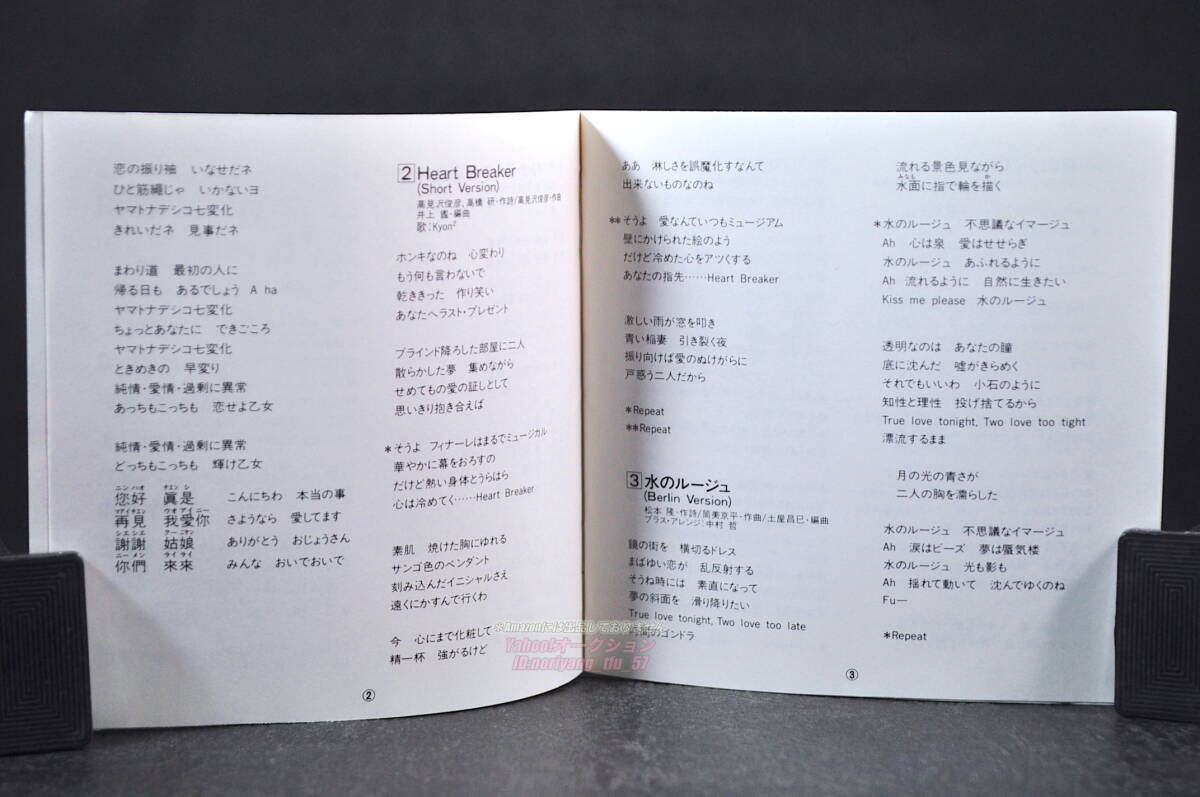 恋の振り袖 いなせだネ
ひと筋縄じゃ いかないヨ
ヤマトナデシコ七変化
きれいだネ 見事だネ
まわり道 最初の人に
帰る日も あるでしょう A ha
ヤマトナデシコ七変化
ちょっとあなたに できごころ
ヤマトナデシコ七変化
ときめきの 早変り
純情・愛情・過剰に異常
あっちもこっちも 恋せよ乙女
純情・愛情・過剰に異常
どっちもこっちも 輝け乙女
ニンハオ チェンシ
您好 眞是 こんにちわ 本当の事
ツァイチェン ウオアイニー
再見 我愛你 さようなら 愛してます
シエシエ クーニャン
謝謝 姑娘 ありがとう おじょうさん
ニーメン ライライ
你們 來來 みんな おいでおいで
2 Heart Breaker
(Short Version)
高見沢俊彦、高橋 研・作詩/高見沢俊彦・作曲
井上 鑑・編曲
歌：Kyon²
ホンキなのね 心変わり
もう何も言わないで
乾ききった 作り笑い
あなたへラスト・プレゼント
ブラインド降ろした部屋に二人
散らかした夢 集めながら
せめてもの愛の証しとして
思いきり抱き合えば
*そうよ フィナーレはまるでミュージカル
華やかに幕をおろすの
だけど熱い身体とうらはら
心は冷めてく……Heart Breaker
素肌 焼けた胸にゆれる
サンゴ色のペンダント
刻み込んだイニシャルさえ
遠くにかすんで行くわ
今 心にまで化粧して
精一杯 強がるけど
②
ああ 淋しさを誤魔化すなんて
出来ないものなのね
**そうよ 愛なんていつもミュージアム
壁にかけられた絵のよう
だけど冷めた心をアツくする
あなたの指先……Heart Breaker
激しい雨が窓を叩き
青い稲妻 引き裂く夜
振り向けば愛のぬけがらに
戸惑う二人だから
*Repeat
**Repeat
3 水のルージュ
(Berlin Version)
松本 隆・作詩/筒美京平・作曲/土屋昌巳・編曲
ブラス・アレンジ：中村 哲
鏡の街を 横切るドレス
まばゆい恋が 乱反射する
そうね時には 素直になって
夢の斜面を 滑り降りたい
True love tonight, Two love too late
時間のゴンドラ
流れる景色見ながら
みなも か
水面に指で輪を描く
*水のルージュ 不思議なイマージュ
Ah 心は泉 愛はせせらぎ
水のルージュ あふれるように
Ah 流れるように 自然に生きたい
Kiss me please 水のルージュ
透明なのは あなたの瞳
底に沈んだ 嘘がきらめく
それでもいいわ 小石のように
知性と理性 投げ捨てるから
True love tonight, Two love too tight
漂流するまま
月の光の青さが
二人の胸を濡らした
水のルージュ 不思議なイマージュ
Ah 涙はビーズ 夢は蜃気楼
水のルージュ 光も影も
Ah 揺れて動いて 沈んでゆくのね
Fu—
*Repeat
③
※Amazonには出品しておりません
Yahoo!オークション
ID:noriyang_tfu_57